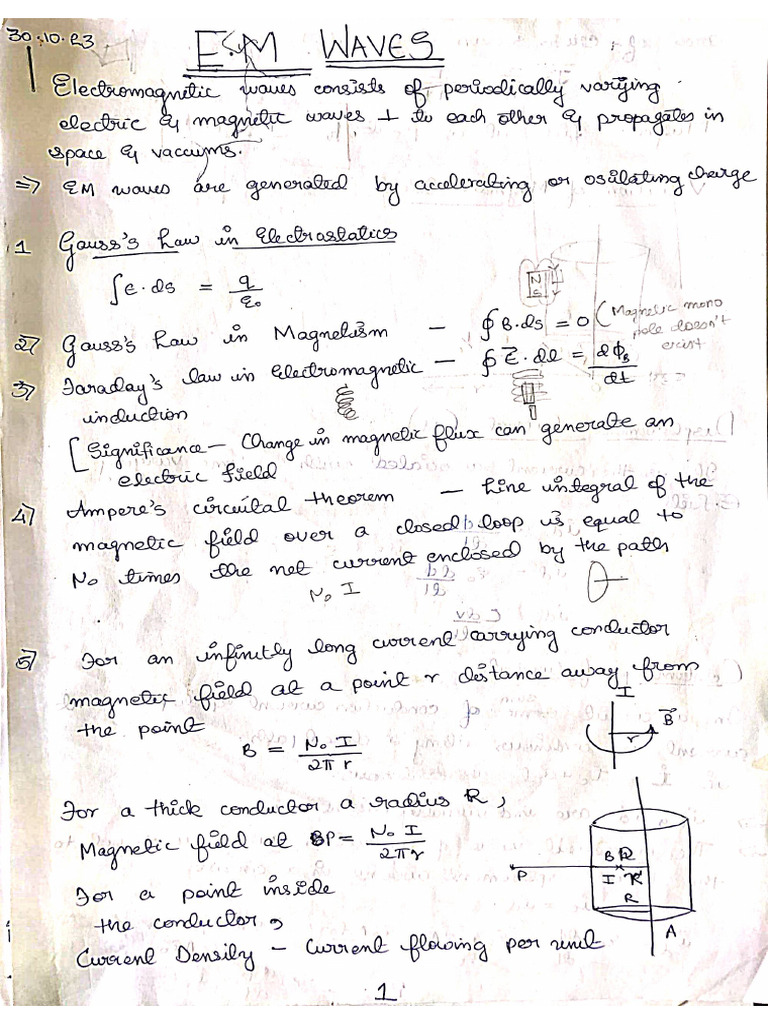 30.10.23
E.M WAVES
Electromagnetic waves consists of periodically varying
electric & magnetic waves ⊥ to each other & propagates in
space & vaccums.
⇒ EM waves are generated by accelerating or osilating charge
1 Gauss's Law in Electrostatics
∫E.ds = q/ε₀
2) Gauss's Law in Magnetism — ∮B.ds = 0 (Magnetic mono
pole doesn't
exist
N
S
3) Faraday's law in Electromagnetic — ∮E⃗.dl = dΦ_B/dt
induction
[Significance — Change in magnetic flux can generate an
electric field
4) Ampere's circuital theorem — Line integral of the
magnetic field over a closed loop is equal to
No times the net current enclosed by the path
No I
5) For an infinitly long current carrying conductor
magnetic field at a point r distance away from
the point
B = No I / 2π r
I
B⃗
r
For a thick conductor a radius R,
Magnetic field at BP = No I / 2πr
For a point inside
the conductor,
P
B R
I R
R
A
Current Density — Current flowing per unit
1